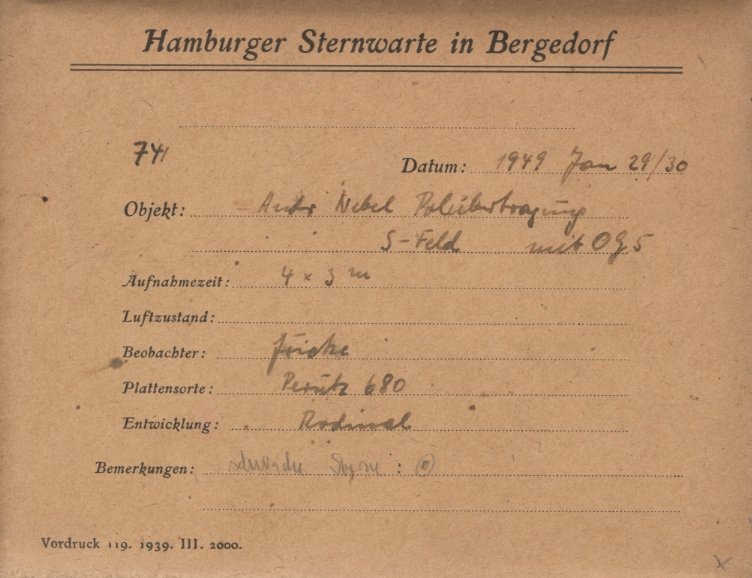 Hamburger Sternwarte in Bergedorf
74
Datum: 1949 Jan 29/30
Objekt: Andr Nebel Polübertragung
S-Feld mit OG5
Aufnahmezeit: 4 × 3 m
Luftzustand:
Beobachter:
Plattensorte: Perutz 680
Entwicklung: Rodinal
Bemerkungen: schwache Sterne :
Vordruck 119. 1939. III. 2000.